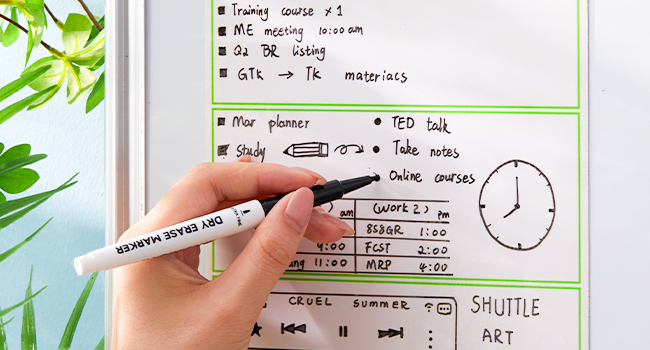 Training course x 1
ME meeting 10:00 am
Q2 BR listing
GTK → TK materiacs
Mar planner
Study
TED talk
Take notes
Online courses
am
(Work 2) pm
858GR 1:00
4:00 FCST 2:00
11:00 MRP 4:00
DRY ERASE MARKER
CRUEL SUMMER
SHUTTLE
ART